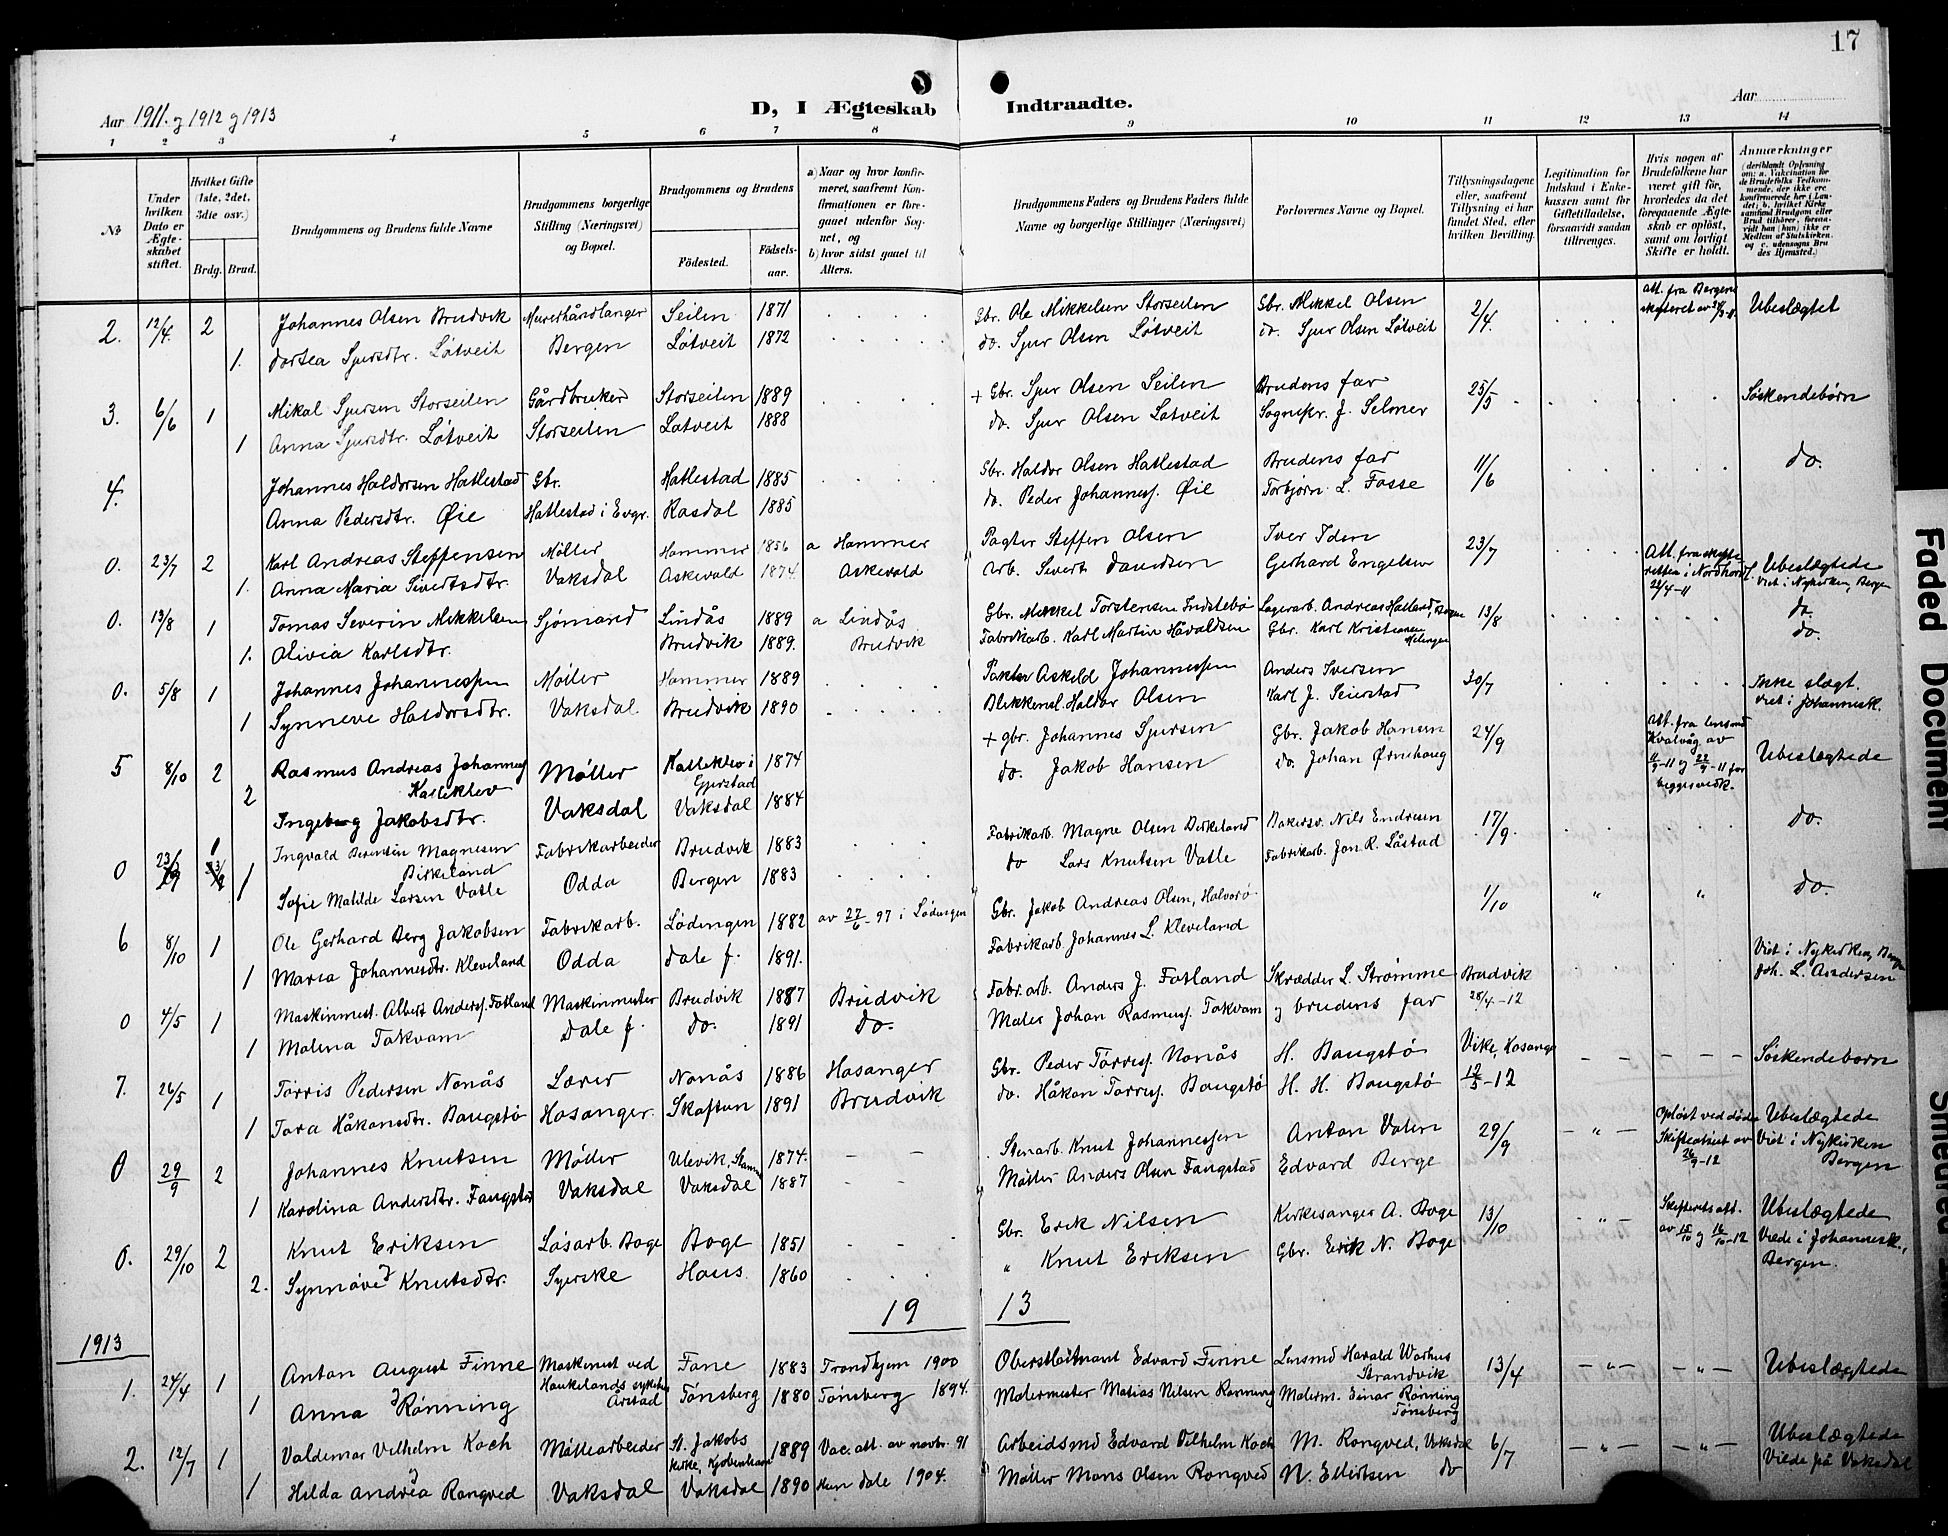 17
Aar 1911. og 1912 og 1913
D, I Ægteskab Indtraadte.
Aar
1 2 3 4 5 6 7 8 9 10 11 12 13 14
№
Under hvilken Dato er Ægteskabet stiftet.
Hvilket Gifte (1ste, 2det, 3die osv.)
Brdg. Brud.
Brudgommens og Brudens fulde Navne
Brudgommens borgerlige Stilling (Næringsvei) og Bopæl.
Brudgommens og Brudens
Fødested.
Fødselsaar.
a) Naar og hvor konfirmeret, saafremt Konfirmationen er foregaaet udenfor Sognet, og
b) hvor sidst gaaet til Alters.
Brudgommens Faders og Brudens Faders fulde Navne og borgerlige Stillinger (Næringsvei)
Forlovernes Navne og Bopæl.
Tillysningsdagene eller, saafremt Tillysning ei har fundet Sted, efter hvilken Bevilling.
Legitimation for Indskud i Enkekassen samt for Giftetilladelse, forsaavidt saadan tiltrænges.
Hvis nogen af Brudefolkene har været gift før, hvorledes da det foregaaende Ægteskab er opløst, samt om lovligt Skifte er holdt.
Anmærkninger
2. 12/4. 2 Johannes Olsen Brudvik Murerhåndlanger Seilen 1871 Gbr. Ole Mikkelsen Storseilen Gbr. Mikkel Olsen 2/4. Att. fra Bergens Ubeslægtet
1. Dortea Sjursdtr. Løtveit Bergen Løtveit 1872 do. Sjur Olsen Løtveit do. Sjur Olsen Løtveit
3. 6/6 1 Mikal Sjursen Storseilen Gårdbruker Storseilen 1889 + Gbr. Sjur Olsen Seilen Brudens far 25/5 Søskendebørn
1 Anna Sjursdtr. Løtveit Storseilen Løtveit 1888 do. Sjur Olsen Løtveit Sognepr. J. Selmer
4. Johannes Haldorsen Hatlestad Gbr. Hatlestad 1885 Gbr. Haldor Olsen Hatlestad Brudens far 11/6 do.
Anna Pedersdtr. Øie Hatlestad i Evgr. Rasdal 1885 do. Peder Johanness. Øie Torbjørn L. Fosse
0. 23/7 2 Karl Andreas Steffensen Møller Hammer 1856 a Hammer Pagter Steffen Olsen Iver Iden 23/7 Att. fra skifteretten i Nordhordl. 22/4-11 Ubeslægtede
1. Anna Maria Sivertsdtr. Vaksdal Askevold 1874 Askevold Arb. Sivert Davidsen Gerhard Engelsen Viet i Nykirken, Bergen
0. 13/8 1 Tomas Severin Mikkelsen Sjømand Lindås 1889 a Lindås Gbr. Mikkel Torstensen Indstebø Lagerarb. Andreas Hatland, Bergen 13/8 do.
1. Olivia Karlsdtr. Brudvik 1889. Brudvik Fabrikarb. Karl Martin Håvaldsen Gbr. Karl Kristiansen Helingen do.
0. 5/8 1 Johannes Johannessen Møller Hammer 1889 Pakter Askild Johannessen Anders Iversen 30/7 Ikke slægt.
1 Synneve Haldorsdtr. Vaksdal Brudvik 1890 Blikkensl. Haldor Olsen Karl J. Seierstad Viet i Johannesk.
5 8/10 2 Rasmus Andreas Johannes Kalleklev Møller Kalleklev i Gjerstad 1874 + gbr. Johannes Sjursen Gbr. Jakob Hansen 24/9 Att. fra lensmd Kvalvåg av 11/9-11 og 22/9-11 for begges vedk. Ubeslægtede
2 Ingeborg Jakobsdtr. Vaksdal Vaksdal 1884 do. Jakob Hansen do. Johan Ørnehaug
0 23/9 1 Ingvald Berentin Magnesen Birkeland Fabrikarbeider Brudvik 1883 Fabrikarb. Magne Olsen Birkeland Bakersv. Nils Endresen 17/9. do.
1 Sofie Matilde Larsen Vatle Odda Bergen 1883 do Lars Knutsen Vatle Fabrikarb. Jon R. Låstad
6 8/10 1 Ole Gerhard Berg Jakobsen Fabrikarb. Lødingen 1882 av 27/6-97 i Lødingen Gbr. Jakob Andreas Olsen, Halvorø 1/10 " " do.
1 Maria Johannesdtr. Kleveland Odda Dale f. 1891. Fabrikarb Johannes L. Kleveland
0 4/5 1 Maskinmest. Albert Anderss. Fotland Maskinmester Brudvik 1887 Brudvik Fabr.arb. Anders J. Fotland Skrædder L. Strømme Brudvik 28/4-12 Viet i Nykirken, Bergen Joh. L. Andersen
1 Malena Takvam Dale f. do. 1891 do. Maler Johan Rasmuss. Takvam og brudens far
7. 26/5 1 Torris Pedersen Nonås Lærer Nonås 1886 Hosanger Gbr. Peder Torriss. Nonås H. Baugstø Vike, Hosanger 12/5-12 Søskendebørn
1 Tora Håkonsdtr. Baugstø Hosanger. Skaftun 1891 Brudvik do. Håkon Torriss. Baugstø H. H. Baugstø
0 29/9 2 Johannes Knutsen Møller Ulevik, 1874. Stenarb. Knut Johannessen Anton Valen 29/9 Opløst ved død. Skifteattest av 26/9-12 Ubeslægtede Viet i Nykirken Bergen
1 Karolina Andersdtr. Faugstad Vaksdal Vaksdal 1887 Møller Anders Olsen Faugstad Edvard Berge
0. 29/10 2 Knut Eriksen Løsarb. Boge Boge 1851 Gbr. Erik Nilsen Kirkesanger A. Boge 13/10 Skifteretsatt. av 15/10 og 16/10-12 Ubeslægtede Viede i Johannesk., Bergen.
2. Synnøve Knutsdtr. Syerske Haus 1860 " Knut Eriksen Gbr. Erik N. Boge
19 13
1913
1. 24/4 1 Anton August Finne Maskinist ved Haukelands sykehus Årstad Fane 1883 Trondhjem 1900 Oberstløitnant Edvard Finne Lensmd Harald Warhus Strandvik 13/4 Ubeslægtede
1 Anna Rønning Tønsberg 1880 Tønsberg 1894. Malermester Matias Nilsen Rønning Malerm. Einar Rønning Tønsberg
2. 12/7 1 Valdemar Vilhelm Koch Møllearbeider St. Jakobs kirke, Kjøbenhavn 1889 Vac. att. av novbr. 91 Arbeidsmd Edvard Vilhelm Koch M. Rongved, Vaksdal 6/7 Ubeslægtede
1 Hilda Andrea Rongved Vaksdal Vaksdal 1890 Hun Dale 1904. Møller Mons Olsen Rongved N. Ellertsen do Viede på Vaksdal
Faded Document